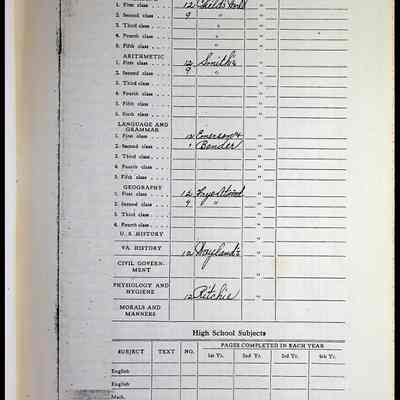 1. First class . . . 12 Child's World "
2. Second class . . . 9 " "
3. Third class . . . " "
4. Fourth class . . . " "
5. Fifth class . . . " "
ARITHMETIC
1. First class . . . 12 Smith's "
2. Second class . . . 9 " "
3. Third class . . . "
4. Fourth class . . . "
5. Fifth class . . . "
6. Sixth class . . . "
LANGUAGE AND GRAMMAR
1. First class . . . 12 Emerson & "
2. Second class . . . " Bender "
3. Third class . . . "
4. Fourth class . . . "
5. Fifth class . . . "
GEOGRAPHY
1. First class . . . 12 Frye-Atwood "
2. Second class . . . 9 " "
3. Third class . . . "
4. Fourth class . . . "
U. S. HISTORY "
VA. HISTORY 12 Wayland's "
CIVIL GOVERN-
MENT "
PHYSIOLOGY AND
HYGIENE 12 Ritchie "
MORALS AND
MANNERS "
High School Subjects
SUBJECT TEXT NO. PAGES COMPLETED IN EACH YEAR
1st Yr. 2nd Yr. 3rd Yr. 4th Yr.
English
English
Math.